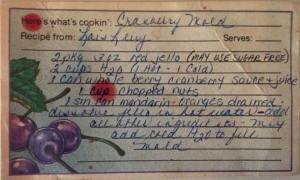 Here's what's cookin': Cranberry Mold
Recipe from: Serves:
2 pkg 3 oz red jello (MAY USE SUGAR FREE)
2 cups H2O (1 Hot - 1 Cold)
1 can whole berry cranberry sauce + juice
1 cup chopped nuts
1 sm can mandarin oranges drained
dissolve jello in hot water - add
all other ingredients - mix
add cold H2O to fill
mold